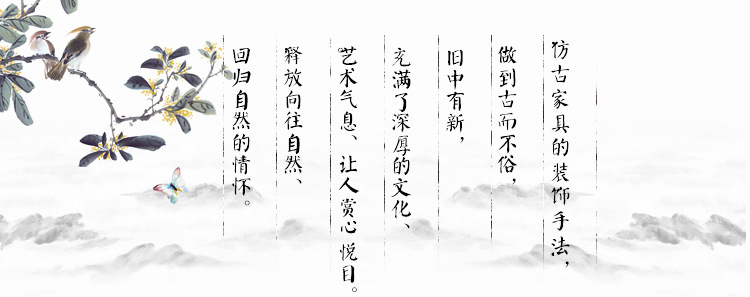 仿古家具的装饰手法，
做到古而不俗，
旧中有新，
充满了深厚的文化、
艺术气息、让人赏心悦目。
释放向往自然、
回归自然的情怀。